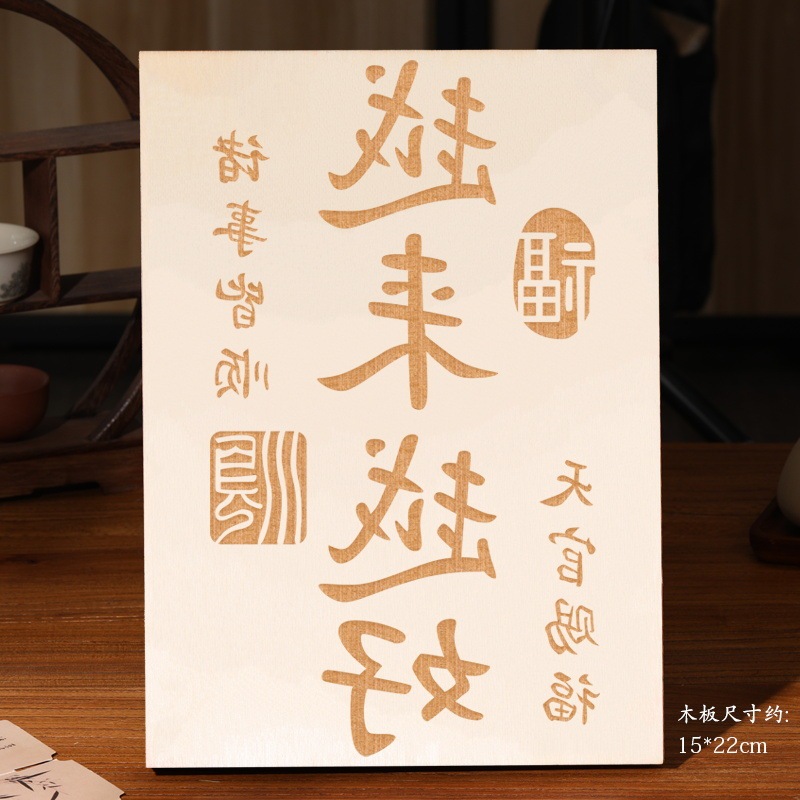 越来越好
福
天官赐福
诸事皆顺
顺
木板尺寸约:
15*22cm